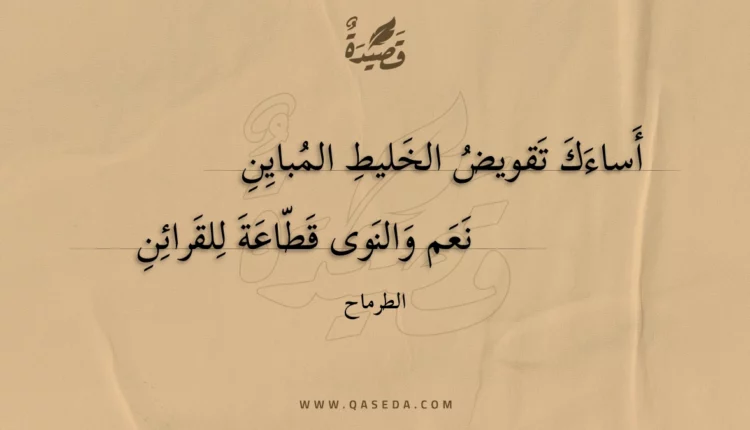 قَصِيدَةٌ
أَساءَكَ تَقويضُ الخَليطِ المُبايِنِ
نَعَم وَالنَوى قَطّاعَةَ لِلقَرائِنِ
الطرماح
WWW.QASEDA.COM